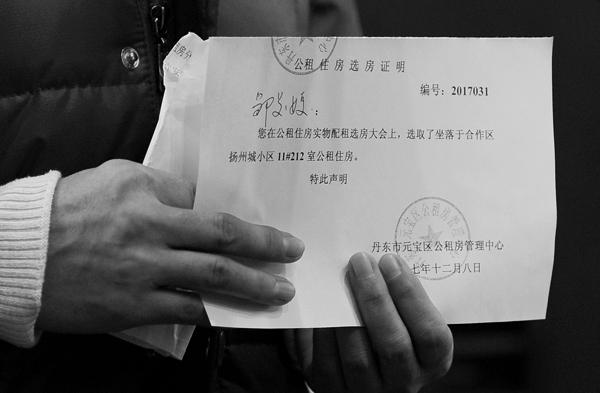 公租住房选房证明
编号：2017031
您在公租住房实物配租选房大会上，选取了坐落于合作区
扬州城小区 11#212 室公租住房。
特此声明
丹东市元宝区公租房管理中心
七年十二月八日